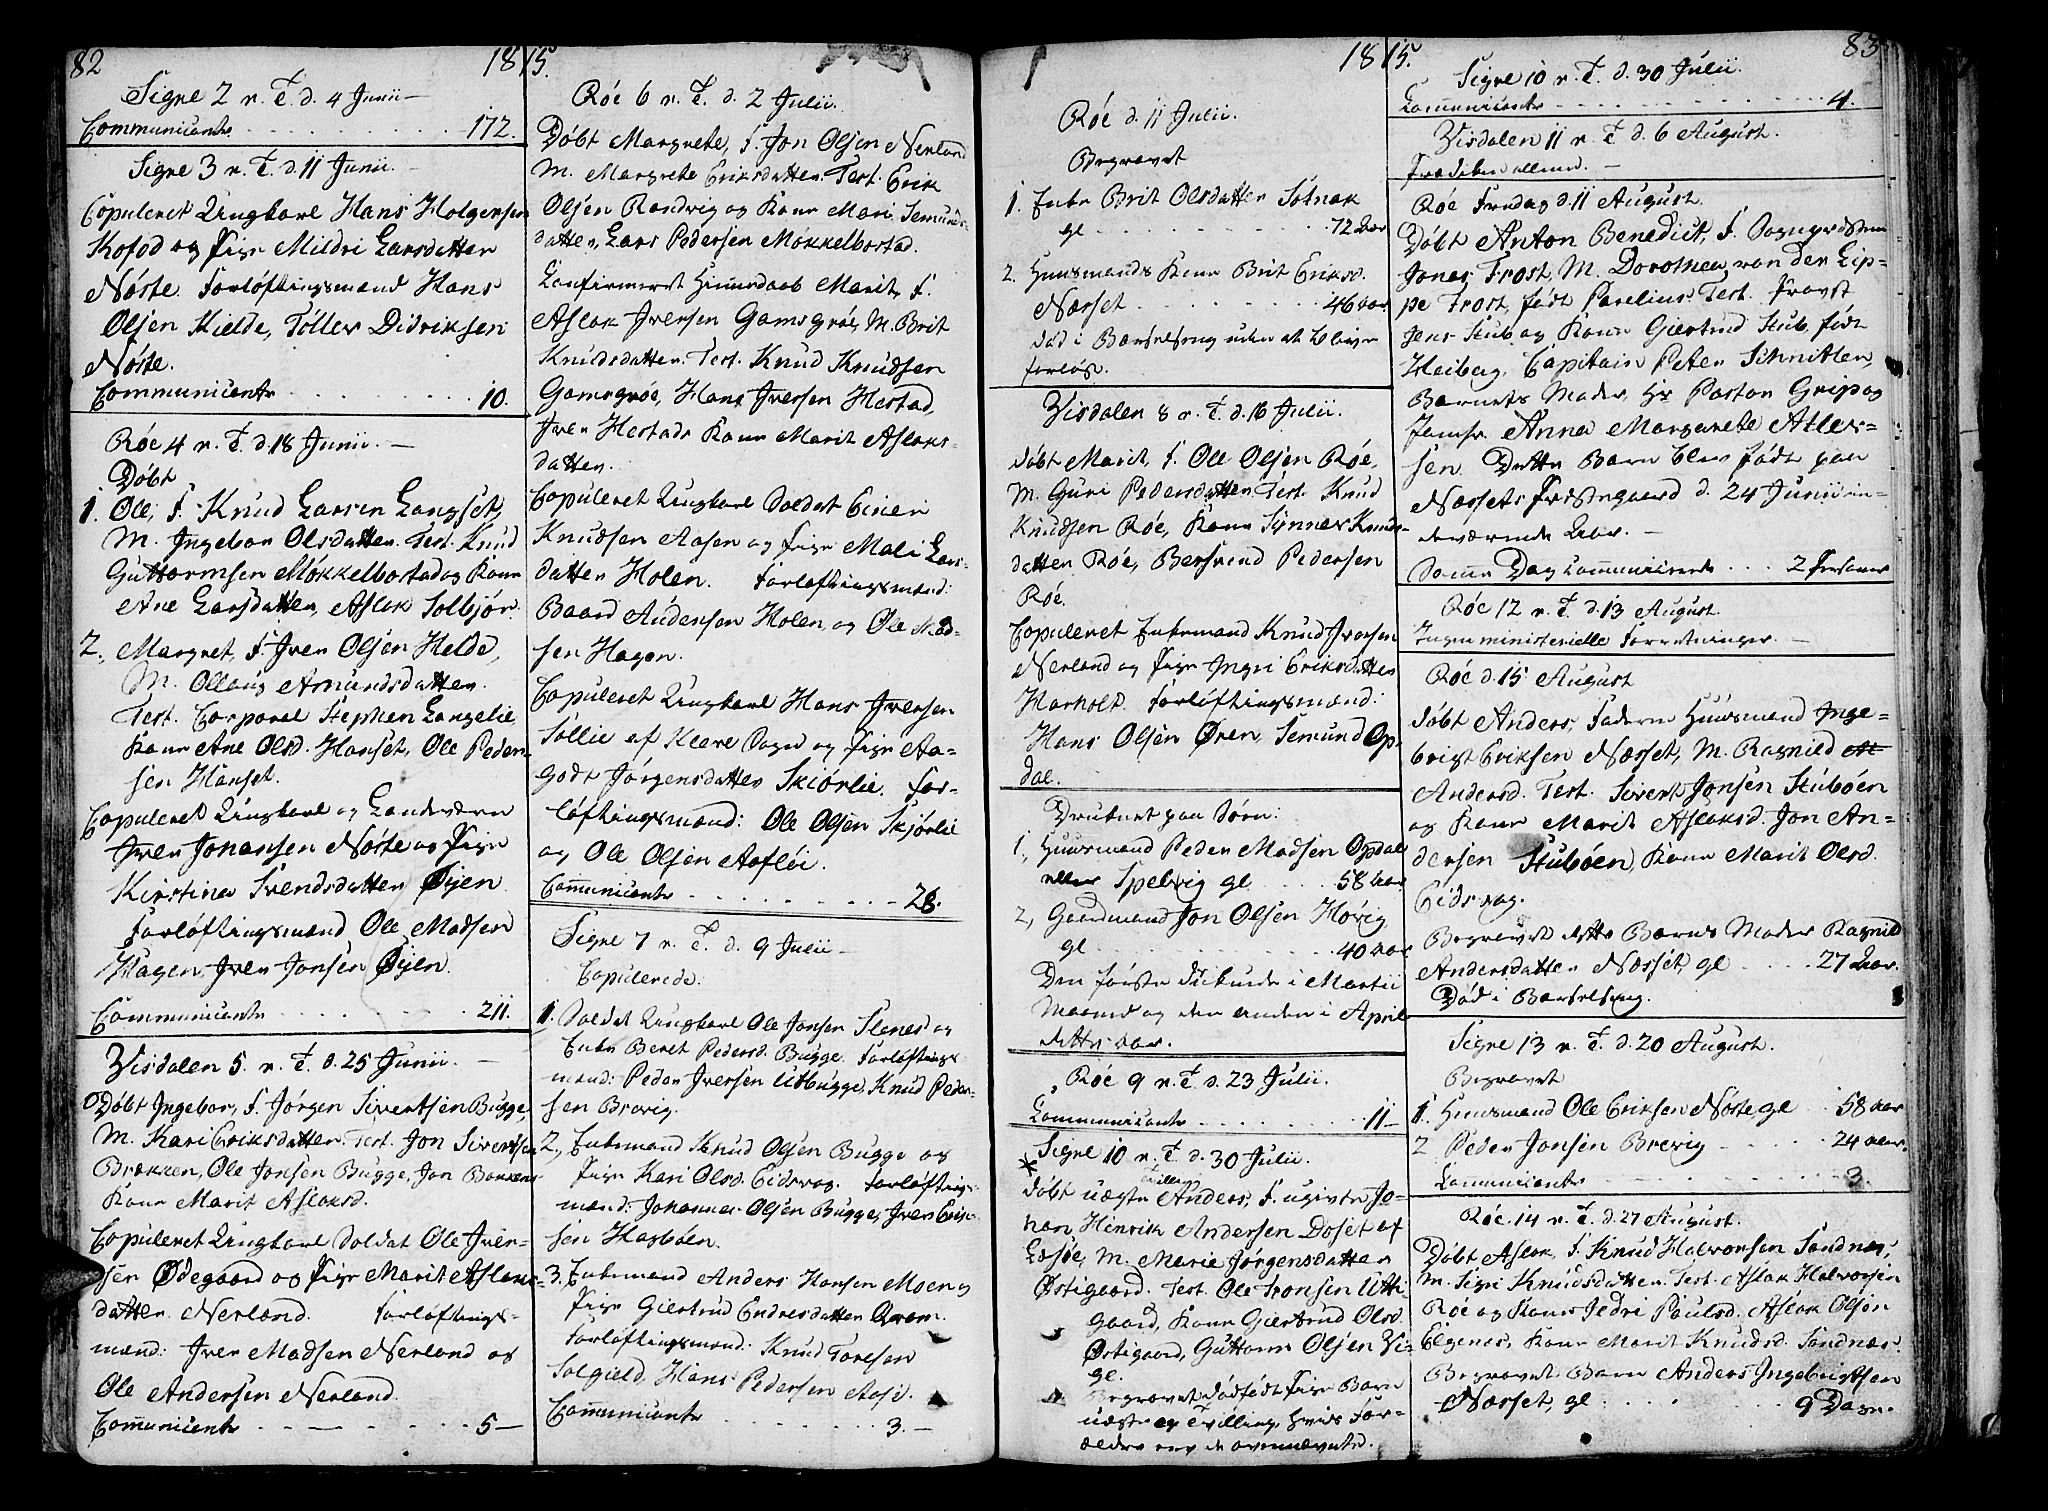 82
1815.
Signe 2 n. T. d. 4 Junii
Communicanter 172.
Signe 3 n. T. d. 11 Junii.
Copuleret Ungkarl Hans Holgersen
Kofod og Pige Mildri Larsdatter
Nöste. Forlöftningsmænd Hans
Olsen Kielde, Töller Didriksen
Nöste.
Communicanter 10.
Röe 4 n. T. d. 18 Junii.
Döbt
1. Ole, F. Knud Larsen Langset,
M. Ingebor Olsdatter. Test. Knud
Guttormsen Mökkelbostad og Kone
Ane Larsdatter, Aslak Solbjör.
2. Margret, F. Iver Olsen Helde,
M. Ollaug Amundsdatter.
Test. Corporal Stephen Langelie,
Kone Ane Olsd. Hanset, Ole Peder-
sen Hanset.
Copuleret Ungkarl og Landeværn
Iver Jonassen Nöste og Pige
Kirstina Svendsdatter Öyen.
Forlöftningsmænd Ole Madsen
Hagen, Iver Jonsen Öyen.
Communicanter 211.
Visdalen 5. n. T. d. 25 Junii.
Döbt Ingebor, F. Jörgen Sivertsen Bugge,
M. Kari Eriksdatter. Test. Jon Sivertsen
Brækken, Ole Jonsen Bugge, Jon Bakkens
Kone Marit Aslaksd.
Copuleret Ungkarl Soldat Ole Iver-
sen Ödegaard og Pige Marit Aslaks-
datter Nerland. Forlöftnings-
mænd: Iver Madsen Nerland og
Ole Andersen Nerland.
Communicanter 5
Röe 6 n. T. d. 2 Julii.
Döbt Margrete, F. Jon Olsen Nerland
M. Margrete Eriksdatter. Test. Erik
Olsen Randvig og Kone Mari Semunds-
datter, Lars Pedersen Mökkelbostad.
Confirmeret Hiemedaab Marit, F.
Aslak Iversen Gamsgröe, M. Brit
Knudsdatter. Test. Knud Knudsen
Gamsgröe, Hans Iversen Hestad,
Iver Hestads Kone Marit Aslaks-
datter.
Copuleret Ungkarl Soldat Einer
Knudsen Aasen og Pige Mali Lars-
datter Holen. Forlöftningsmænd:
Baard Andersen Holen og Ole Mad-
sen Hagen.
Copuleret Ungkarl Hans Iversen
Sollie af Kleve Sogn og Pige Aa-
godt Jörgensdatter Skiörlie. For-
löftningsmænd: Ole Olsen Skjörlie
og Ole Olsen Aaflöi.
Communicanter 28.
Signe 7 n. T. d. 9 Julii
Copulerede:
1. Soldat Ungkarl Ole Jonsen Slenes og
Enke Beret Pedersd. Bugge. Forlöftnings-
mænd: Peder Iversen Utbugge, Knud Peder-
sen Brevig.
2. Enkemand Knud Olsen Bugge og
Pige Kari Olsd. Eidsvag. Forlöftnings-
mænd: Johannes Olsen Bugge, Iver Erik-
sen Hasböen.
3. Enkemand Anders Hansen Moen og
Pige Giertrud Endresdatter Brem.
Forlöftningsmænd: Knud Toresen
Solgield, Hans Pedersen Aase.
Communicanter 3.
1815.
83
Röe d. 11 Julii.
Begravet
1. Enke Brit Olsdatter Solnak
gl. 72 Aar
2. Huusmands Kone Brit Eriksd.
Næsset 46 Aar.
död i Barselseng uden at blive
forlöst.
Visdalen 8 n. T. d. 16 Julii.
Döbt Marit, F. Ole Olsen Röe,
M. Guri Pedersdatter. Test. Knud
Knudsen Röe, Kone Synnev Knuds-
datter Röe, Bersvend Pedersen
Röe.
Copuleret Enkemand Knud Iversen
Nerland og Pige Ingri Eriksdatter
Harholt. Forlöftningsmænd:
Hans Olsen Ören, Semund Op-
dal.
Druknet paa Söen:
1. Huusmand Peder Madsen Opdal
eller Spelvig gl. 58 Aar
2. Gaardmand Jon Olsen Hövig
gl. 40 Aar
Den förste skeede i Martii
Maaned og den anden i April
dette Aar.
Röe 9 n. T. d. 23 Julii.
Communicanter 11
Signe 10 n. T. d. 30 Julii.
* Döbt uægte Tvilling Anders, F. ugivte Jo-
han Hinrik Andersen Doset af
Læsöe, M. Marie Jörgensdatter
Östigaard. Test. Ole Tronsen Utti-
gaard, Kone Giertrud Olsd.
Östigaard, Guttorm Olsen Vi-
ge.
Begravet dödfödt Pige Barn
uægte og Tvilling, hvis For-
ældre ere de ovennævnte.
Signe 10 n. T. d. 30 Julii.
Communicanter 4.
Visdalen 11 n. T. d. 6 August.
Præken allene.
Röe Fredag d. 11 August.
Döbt Anton Benedict, F. Sognepræsten
Jonas Frost, M. Dorothea van der Lip-
pe Frost, födt Parelius. Test. Provst
Jens Stub og Kone Giertrud Stub, födt
Heiberg, Capitain Peter Schnitler,
Barnets Moder, Hr Pastor Grip og
Jomfr. Anna Margarete Atler-
sen. Dette Barn blev födt paa
Næssets Præstegaard d. 24 Junii in-
deværende Aar.
Samme Dag Communicerede 2 Personer
Röe 12 n. T. d. 13 August.
Ingen ministerielle Forretninger.
Röe d. 15 August
Döbt Anders, Faderen Huusmand Inge-
brigt Eriksen Næsset, M. Ragnild
Andersd. Test. Sivert Jonsen Stuböen
og Kone Marit Aslaksd. Jon An-
dersen Stuböen, Kone Marit Olsd.
Eidsvag.
Begravet dette Barns Moder Ragnild
Andersdatter Næsset, gl. 27 Aar.
Död i Barselseng.
Signe 13 n. T. d. 20 August.
Begravet
1. Huusmand Ole Eriksen Nöste gl. 58 Aar
2 Peder Jonsen Brevig 24 Aar.
Communicanter 3.
Röe 14 n. T. d. 27 August.
Döbt Aslak, F. Knud Halvorsen Sandnæs,
M. Sigri Knudsdatter. Test. Aslak Halvorsen
Röe og Kone Sedri Paulsd. Aslak Olsen
Elgenes, Kone Marit Knudsd. Sandnæs.
Begravet Barn Anders Ingebrigtsen
Næsset, gl. 9 Dage.